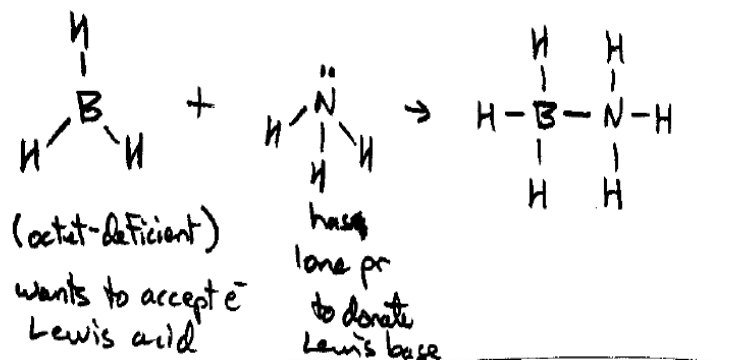 H
B
H H
+
N̈
H H
H
→
H H
H-B-N-H
H H
(octet-deficient)
wants to accept e⁻
Lewis acid
has
lone pr
to donate
Lewis base